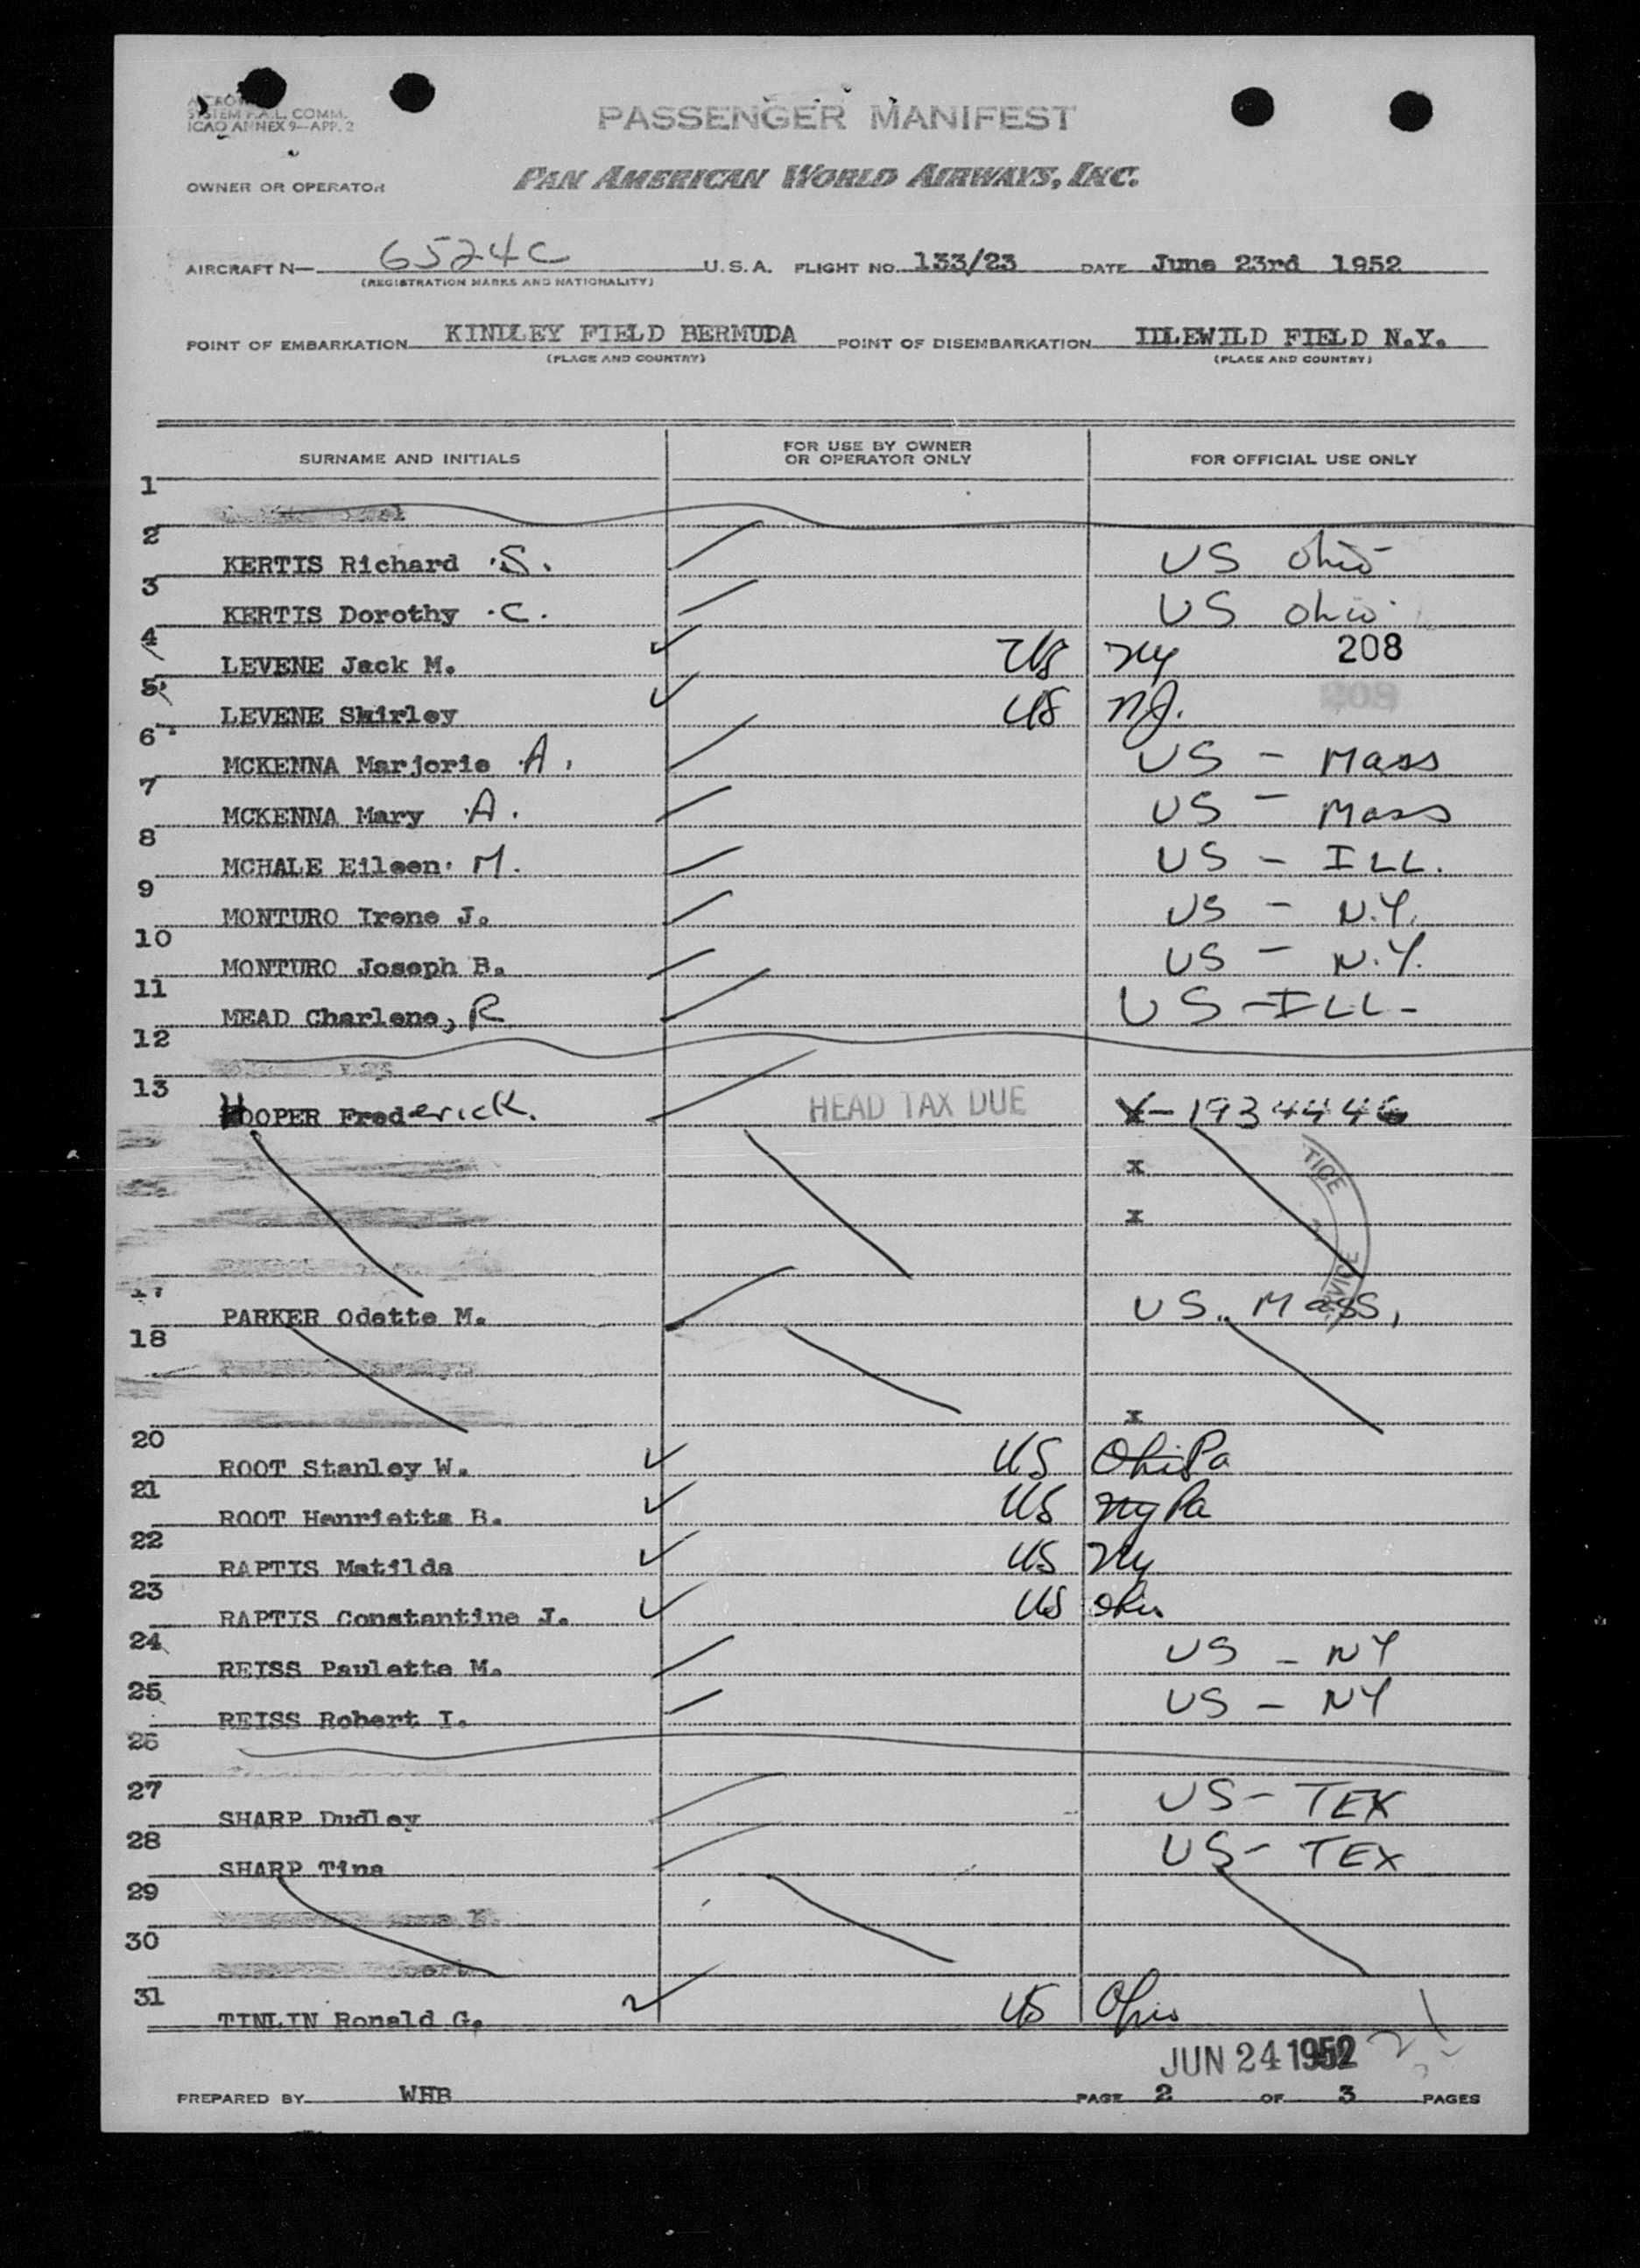 SYSTEM F.A.L. COMM.
ICAO ANNEX 9—APP. 2
PASSENGER MANIFEST
OWNER OR OPERATOR PAN AMERICAN WORLD AIRWAYS, INC.
AIRCRAFT N— 6524C U.S.A. FLIGHT NO. 133/23 DATE June 23rd 1952
(REGISTRATION MARKS AND NATIONALITY)
POINT OF EMBARKATION KINDLEY FIELD BERMUDA POINT OF DISEMBARKATION IDLEWILD FIELD N.Y.
(PLACE AND COUNTRY) (PLACE AND COUNTRY)
SURNAME AND INITIALS FOR USE BY OWNER OR OPERATOR ONLY FOR OFFICIAL USE ONLY
1
2 KERTIS Richard S. US Ohio
3 KERTIS Dorothy C. US Ohio
4 LEVENE Jack M. US NY 208
5 LEVENE Shirley US NJ. 209
6 MCKENNA Marjorie A. US - Mass
7 MCKENNA Mary A. US - Mass
8 MCHALE Eileen M. US - ILL.
9 MONTURO Irene J. US - N.Y.
10 MONTURO Joseph B. US - N.Y.
11 MEAD Charlene, R US - ILL -
12
13 HOOPER Frederick. HEAD TAX DUE V-1934446
x TICE
x
VICE
17 PARKER Odette M. US. Mass,
18
x
20 ROOT Stanley W. US Ohi Pa
21 ROOT Henrietta B. US NY Pa
22 RAPTIS Matilda US NY
23 RAPTIS Constantine J. US Ohio
24 REISS Paulette M. US - NY
25 REISS Robert I. US - NY
26
27 SHARP Dudley US - TEX
28 SHARP Tina US - TEX
29
30
31 TINLIN Ronald G. US Ohio
JUN 24 1952
PREPARED BY WHB PAGE 2 OF 3 PAGES